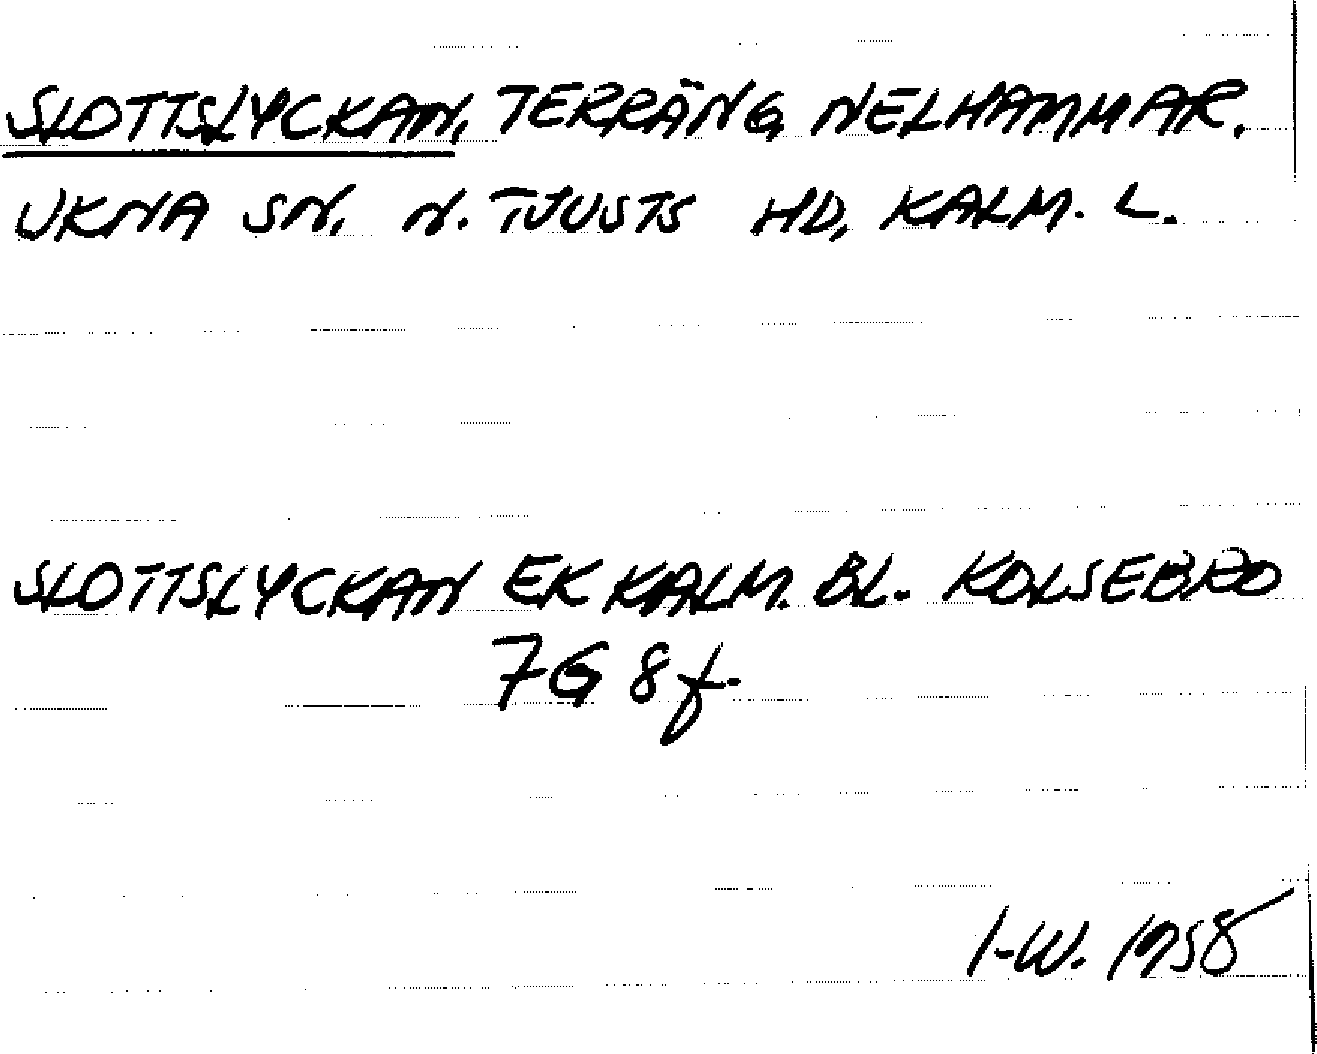 SLOTTSLYCKAN, TERRÄNG, NELHAMMAR.
UKNA SN, N. TJUSTS HD, KALM. L.
SLOTTSLYCKAN EK KALM. BL. KOLSEBRO
7G 8f.
I-W. 1958